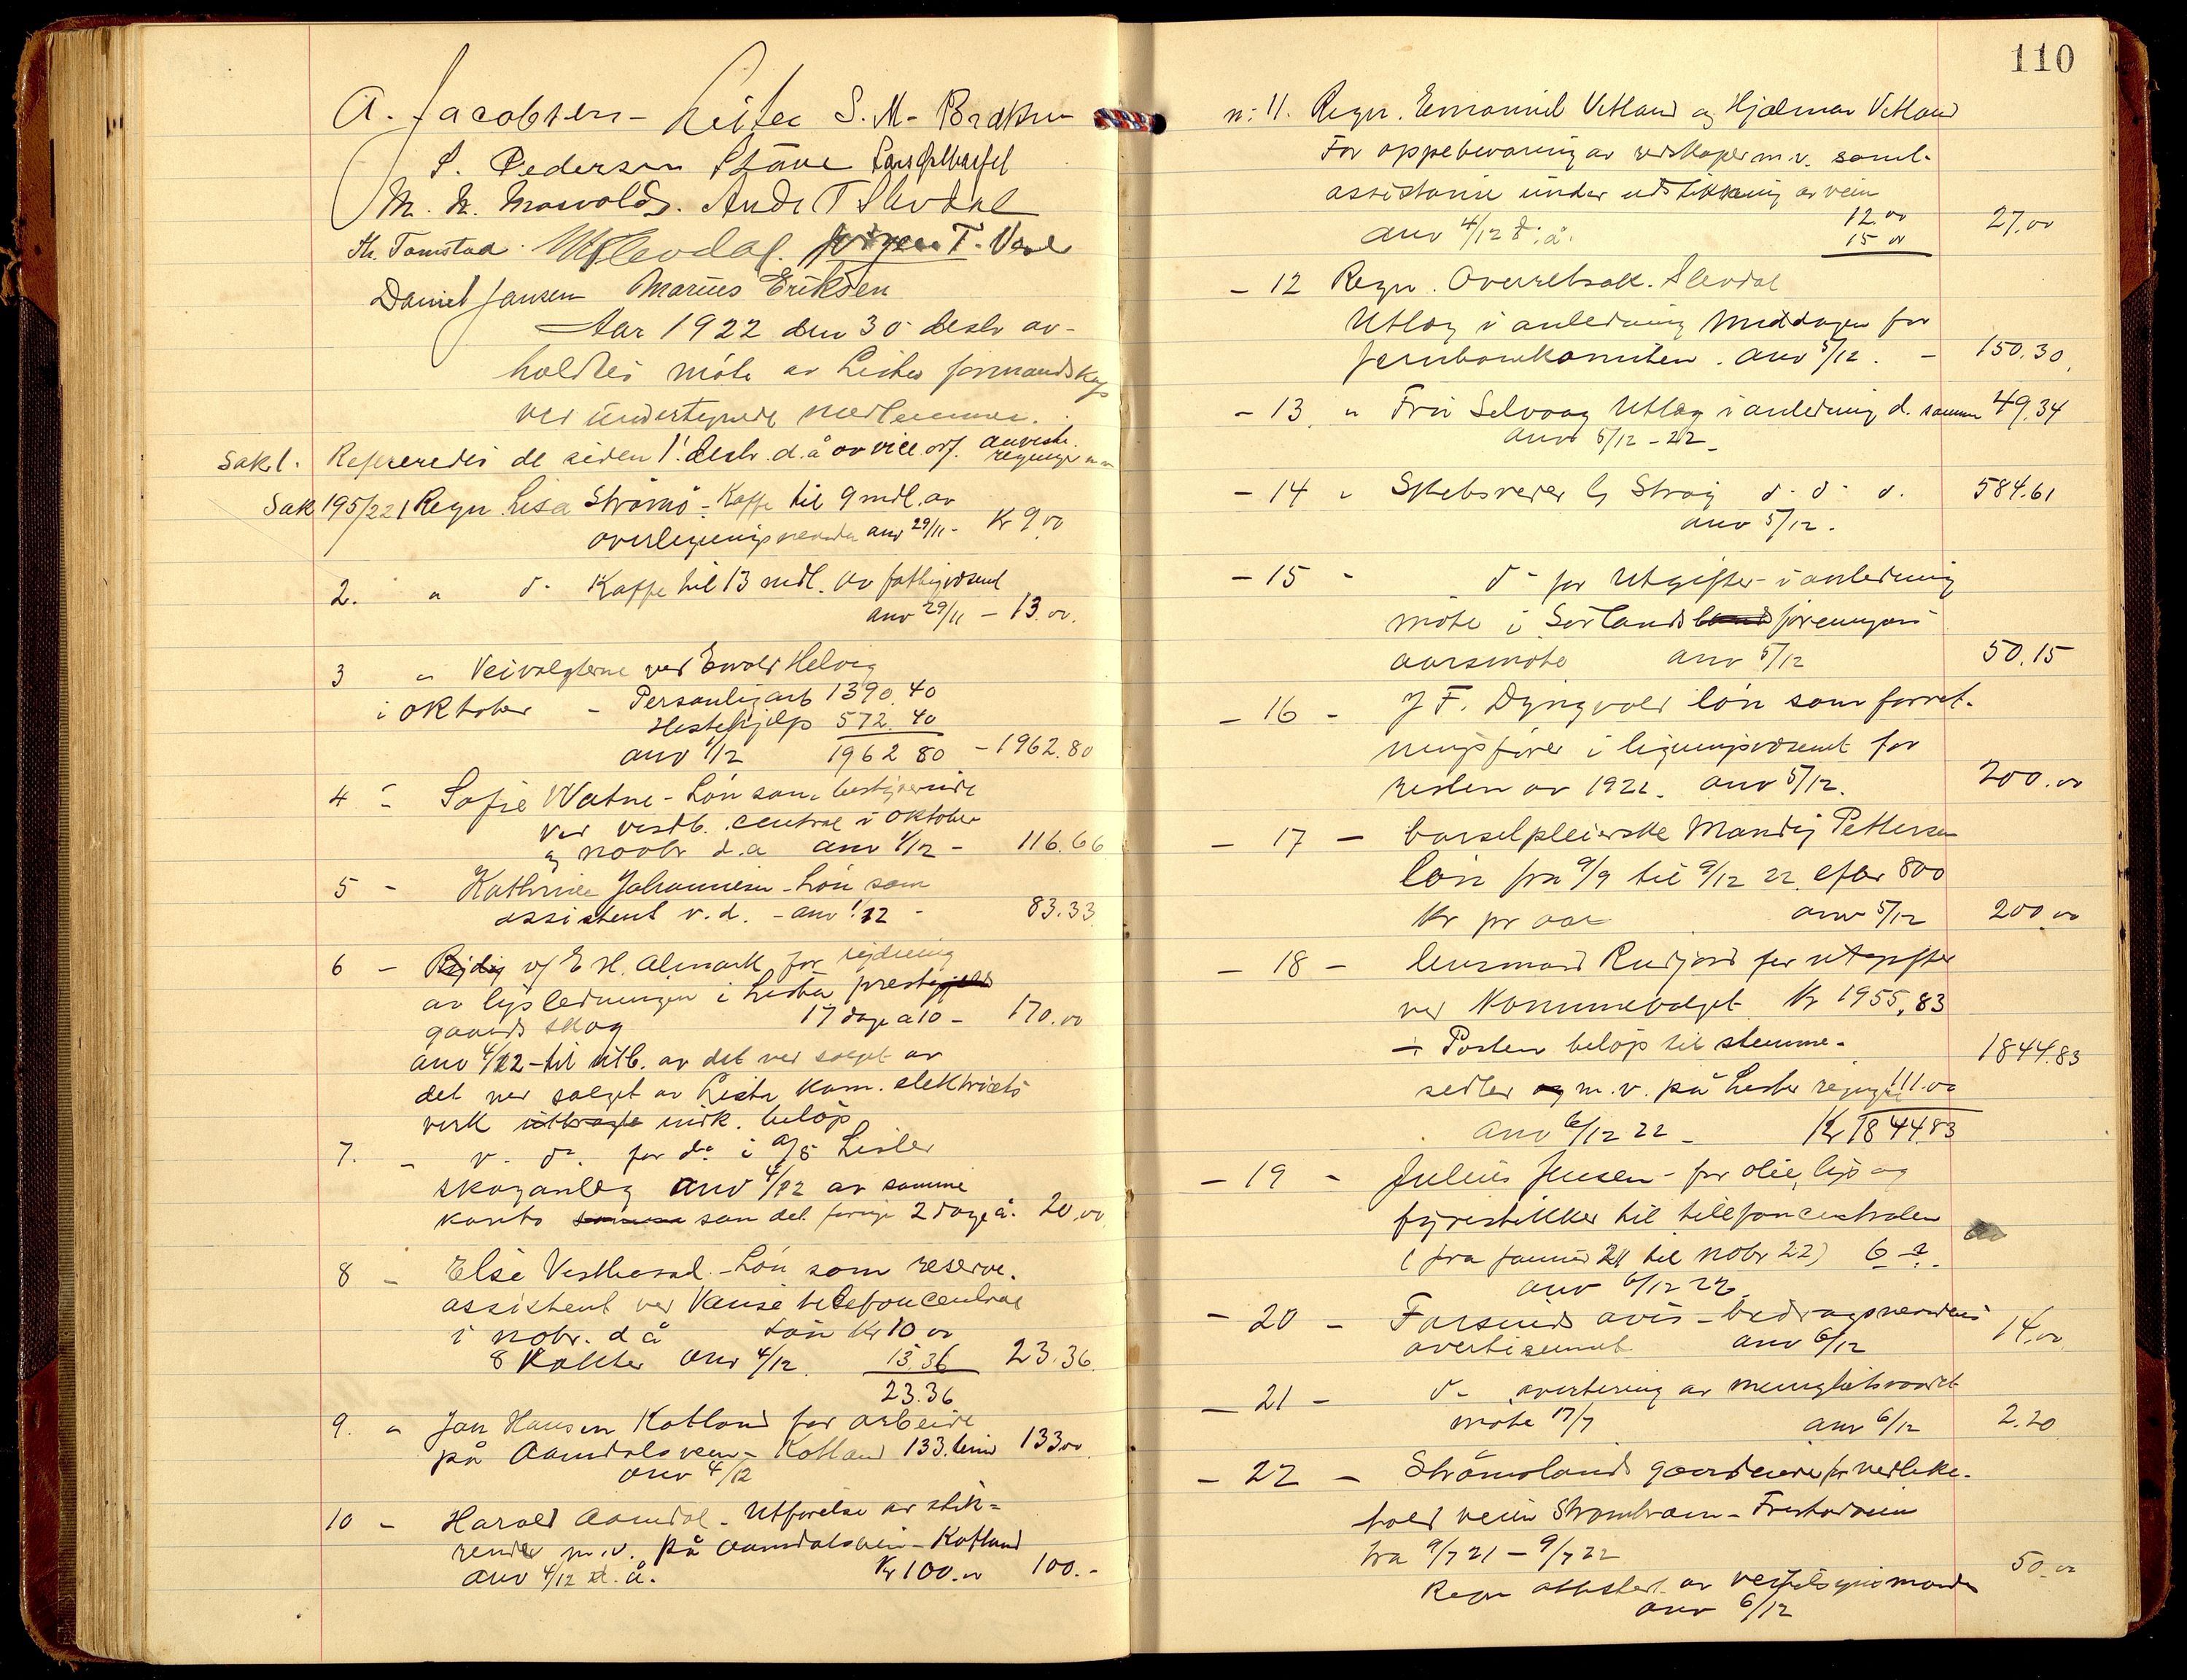 A. Jacobsen - S. M.
S. Pedersen Ståve
M. N. Andr T Slevdal
Th. Tomstad. MSlevdal. Jørgen T. Vere
Daniel Jansen Marius Eriksen
Aar 1922 den 30 desbr av-
holdtes møte av Lista formandskap
ved undertegnede medlemmer.
Sak 1. Refereredes de siden 1. desbr. d.å av vice orf. anviste regninger
Sak 195/22 1 Regn Lisa Strømø - Kaffe til 9 mdl. av
overligningsnevnda anv 29/11 - Kr 9.00
2. " d- Kaffe til 13 mdl. av fattigvæsenet
anv 29/11 - 13.00.
3 " Veivalgterne ved Helvig
i oktober - Personlig arb 1390.40
Hestehjelp 572.40
anv 1/12 1962 80 - 1962.80
4 " Sofie Watne - Løn som bestyrerinde
ved central i oktober
og novbr d.a anv 1/12 - 116.66
5 - Kathrine Johannesen - Løn som
assistent v.d. - anv 1/12 - 83.33
6 - v/ E H. Almark for rydning
av lysledningen i Lista preste
gaards skog 17 dage a 10 - 170.00
anv 4/12 - til utb. av det ved salget av
det ved salget av Lista kom. elektricitets
verk indk. beløp
7. - v. d-. for do i A/S Lister
skoganlæg anv 4/12 av samme
konto som det forrige 2 dage å. 20.00
8 - Else Vestbesad - Løn som reserve.
assistent ved Vanse telefoncentral
i nobr. d å Løn Kr 10 00
8 anv 4/12. 13.36 23.36.
23.36
9. " Jan Hansen Kotland for arbeide
på Aamdalsveien - Kotland 133 timer 133.00
anv 4/12
10 - Harald Aamdal - Utførelse av stik-
render m.v. på Aamdalsvein - Kotland
anv 4/12 d. å. Kr 100.00 100.-
110
n: 11. Regn. Emanuel Vetland og Hjalmar Vetland
For oppebevaring av redskaper m.v. samt.
assistanse under utstikkning av vein
anv 4/12 d. å. 12.00 27.00
15 00
- 12 Regn. Overretssak. Slevdal
Utlæg i anledning Middagen for
Jernbanekomiteen. anv 5/12. - 150.30
- 13. " Fru Selvaag Utlæg i anledning d. samme 49.34
anv 5/12 - 22
- 14 " Skibsreder G Stray d- d- d. 584.61
anv 5/12.
- 15 - d- for Utgifter - i anledning
møte i Sørlandsforeningens
aarsmøte anv 5/12 50.15
- 16 - J F. Dyngvold løn som forret-
ningsfører i ligningsvæsenet for
resten av 1922. anv 5/12. 200.00
- 17 - barselpleierske Mandij Pettersen
løn fra 9/9 til 9/12 22 efter 800
Kr pr aar anv 5/12 200.00
- 18 - lensmand Rudjord for utgifter
ved Kommunevalget Kr 1955.83
÷ Posten beløp til stemme-
sedler m.v. på Lister regning 111.00 1844.83
anv 6/12 22 - Kr 1844.83
- 19 - Julius Jensen - for olie, lys og
fyrstikker til tellefoncentralen
(fra januar 21 til nobr 22)
anv 6/12 22.
- 20 - Farsunds avis -
avertisement anv 6/12 14.00
- 21 - d- avertering av menighetsraadet
møte 17/7 anv 6/12 2.20
- 22 - Strømslands gaardeiere for vedlike-
hold veien
fra 9/7 21 - 9/7 22
Regn attestert av 50.00
anv 6/12